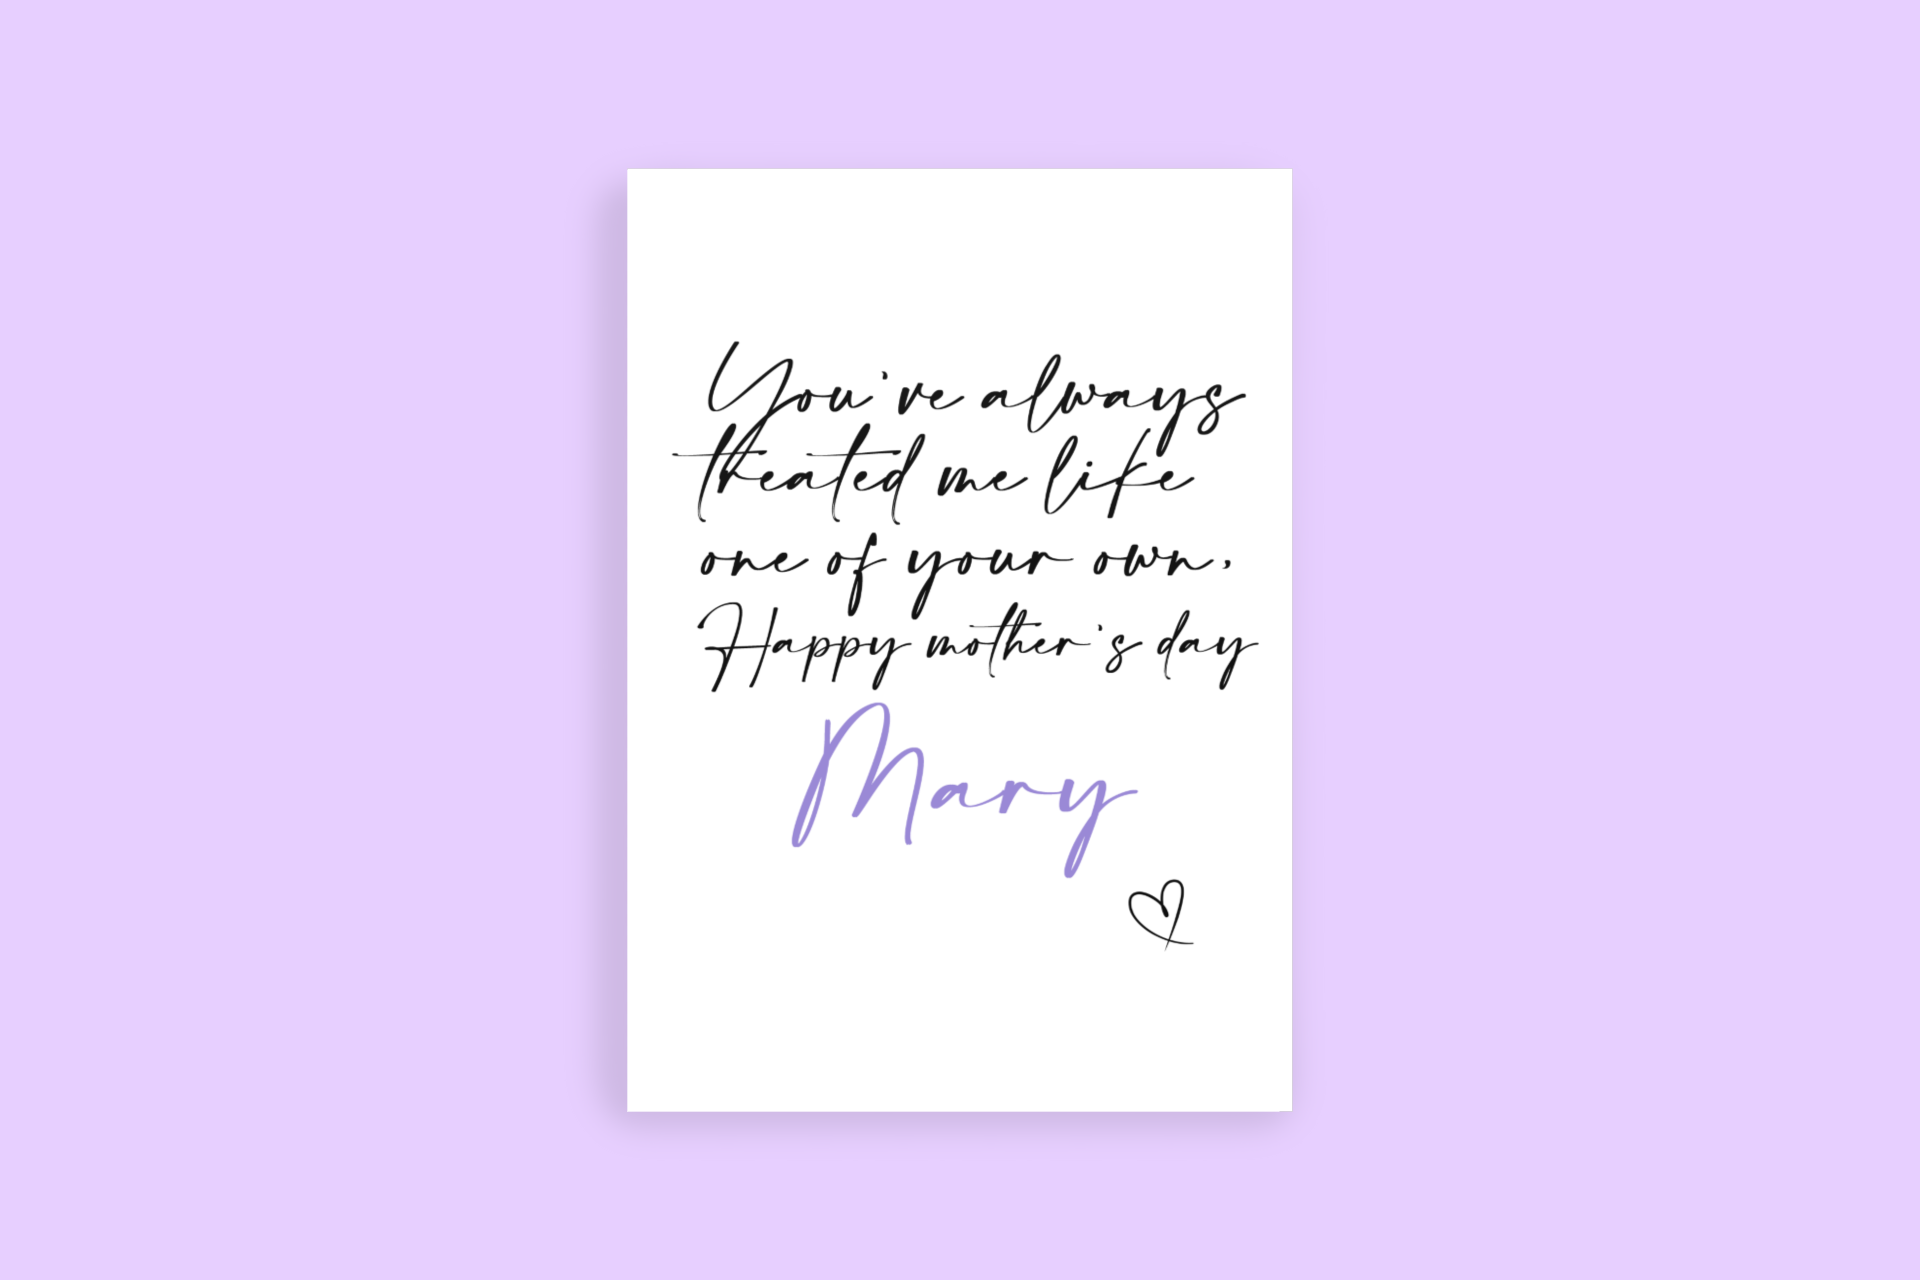 You've always
treated me like
one of your own,
Happy mother's day
Mary